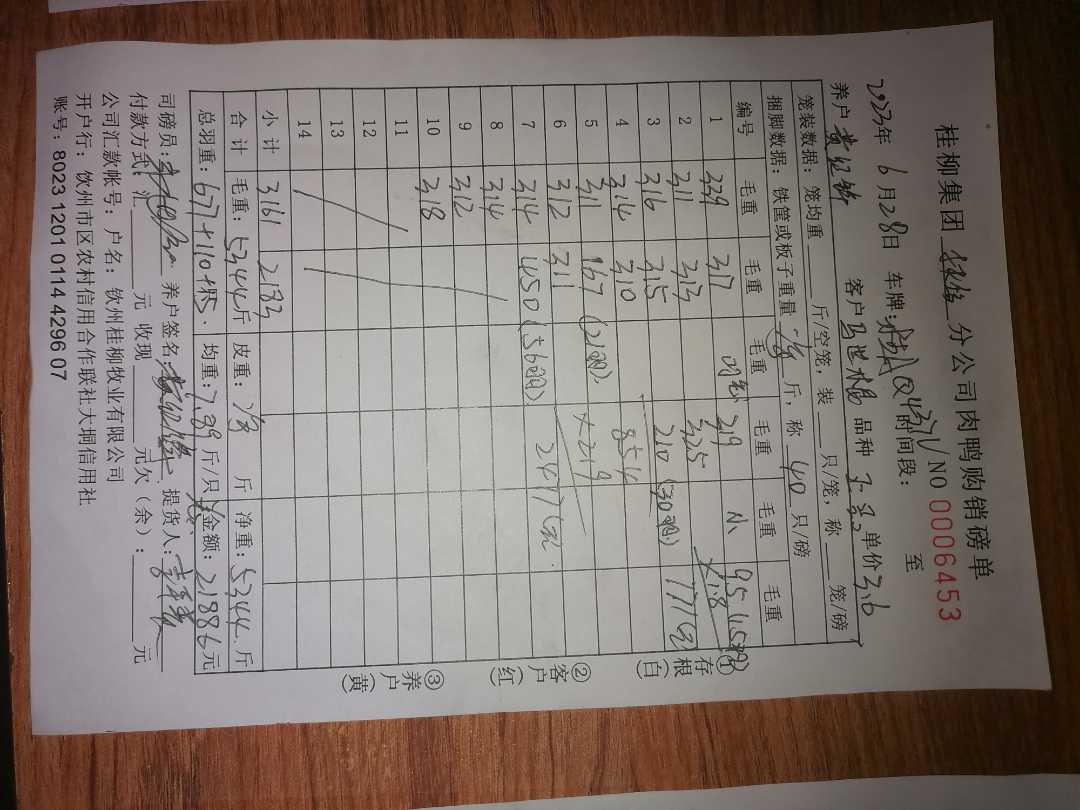 桂柳集团 分公司肉鸭购销磅单
2023年 6月28日 车牌: 时间段: 至 NO 0006453
养户 客户 品种 单价3.6
笼装数据：笼均重 斤/空笼，装 只/笼，称 笼/磅
捆脚数据：铁筐或板子重量 斤，称 40 只/磅
编号 毛重 毛重 毛重 毛重 毛重 毛重
1 339 317 219 95(15羽)
2 311 313 325 ×1.8
3 316 315 210 (30羽) 171元
4 314 310 8514
5 311 167 (21羽) ×219
6 312 311 2471元
7 314 450 (56羽)
8 314
9 312
10 318
11
12
13
14
小计 3161 2183
合计 毛重：5344斤 皮重： 斤 净重：5344斤
总羽重：677+110+15 均重：7.89斤/只 总金额：21886元
司磅员： 养户签名： 提货人：
付款方式：汇 元 收现 元欠（余）： 元
公司汇款帐号：户名：钦州桂柳牧业有限公司
开户行：钦州市区农村信用合作联社大垌信用社
账号：8023 1201 0114 4296 07
①存根（白）
②客户（红）
③养户（黄）